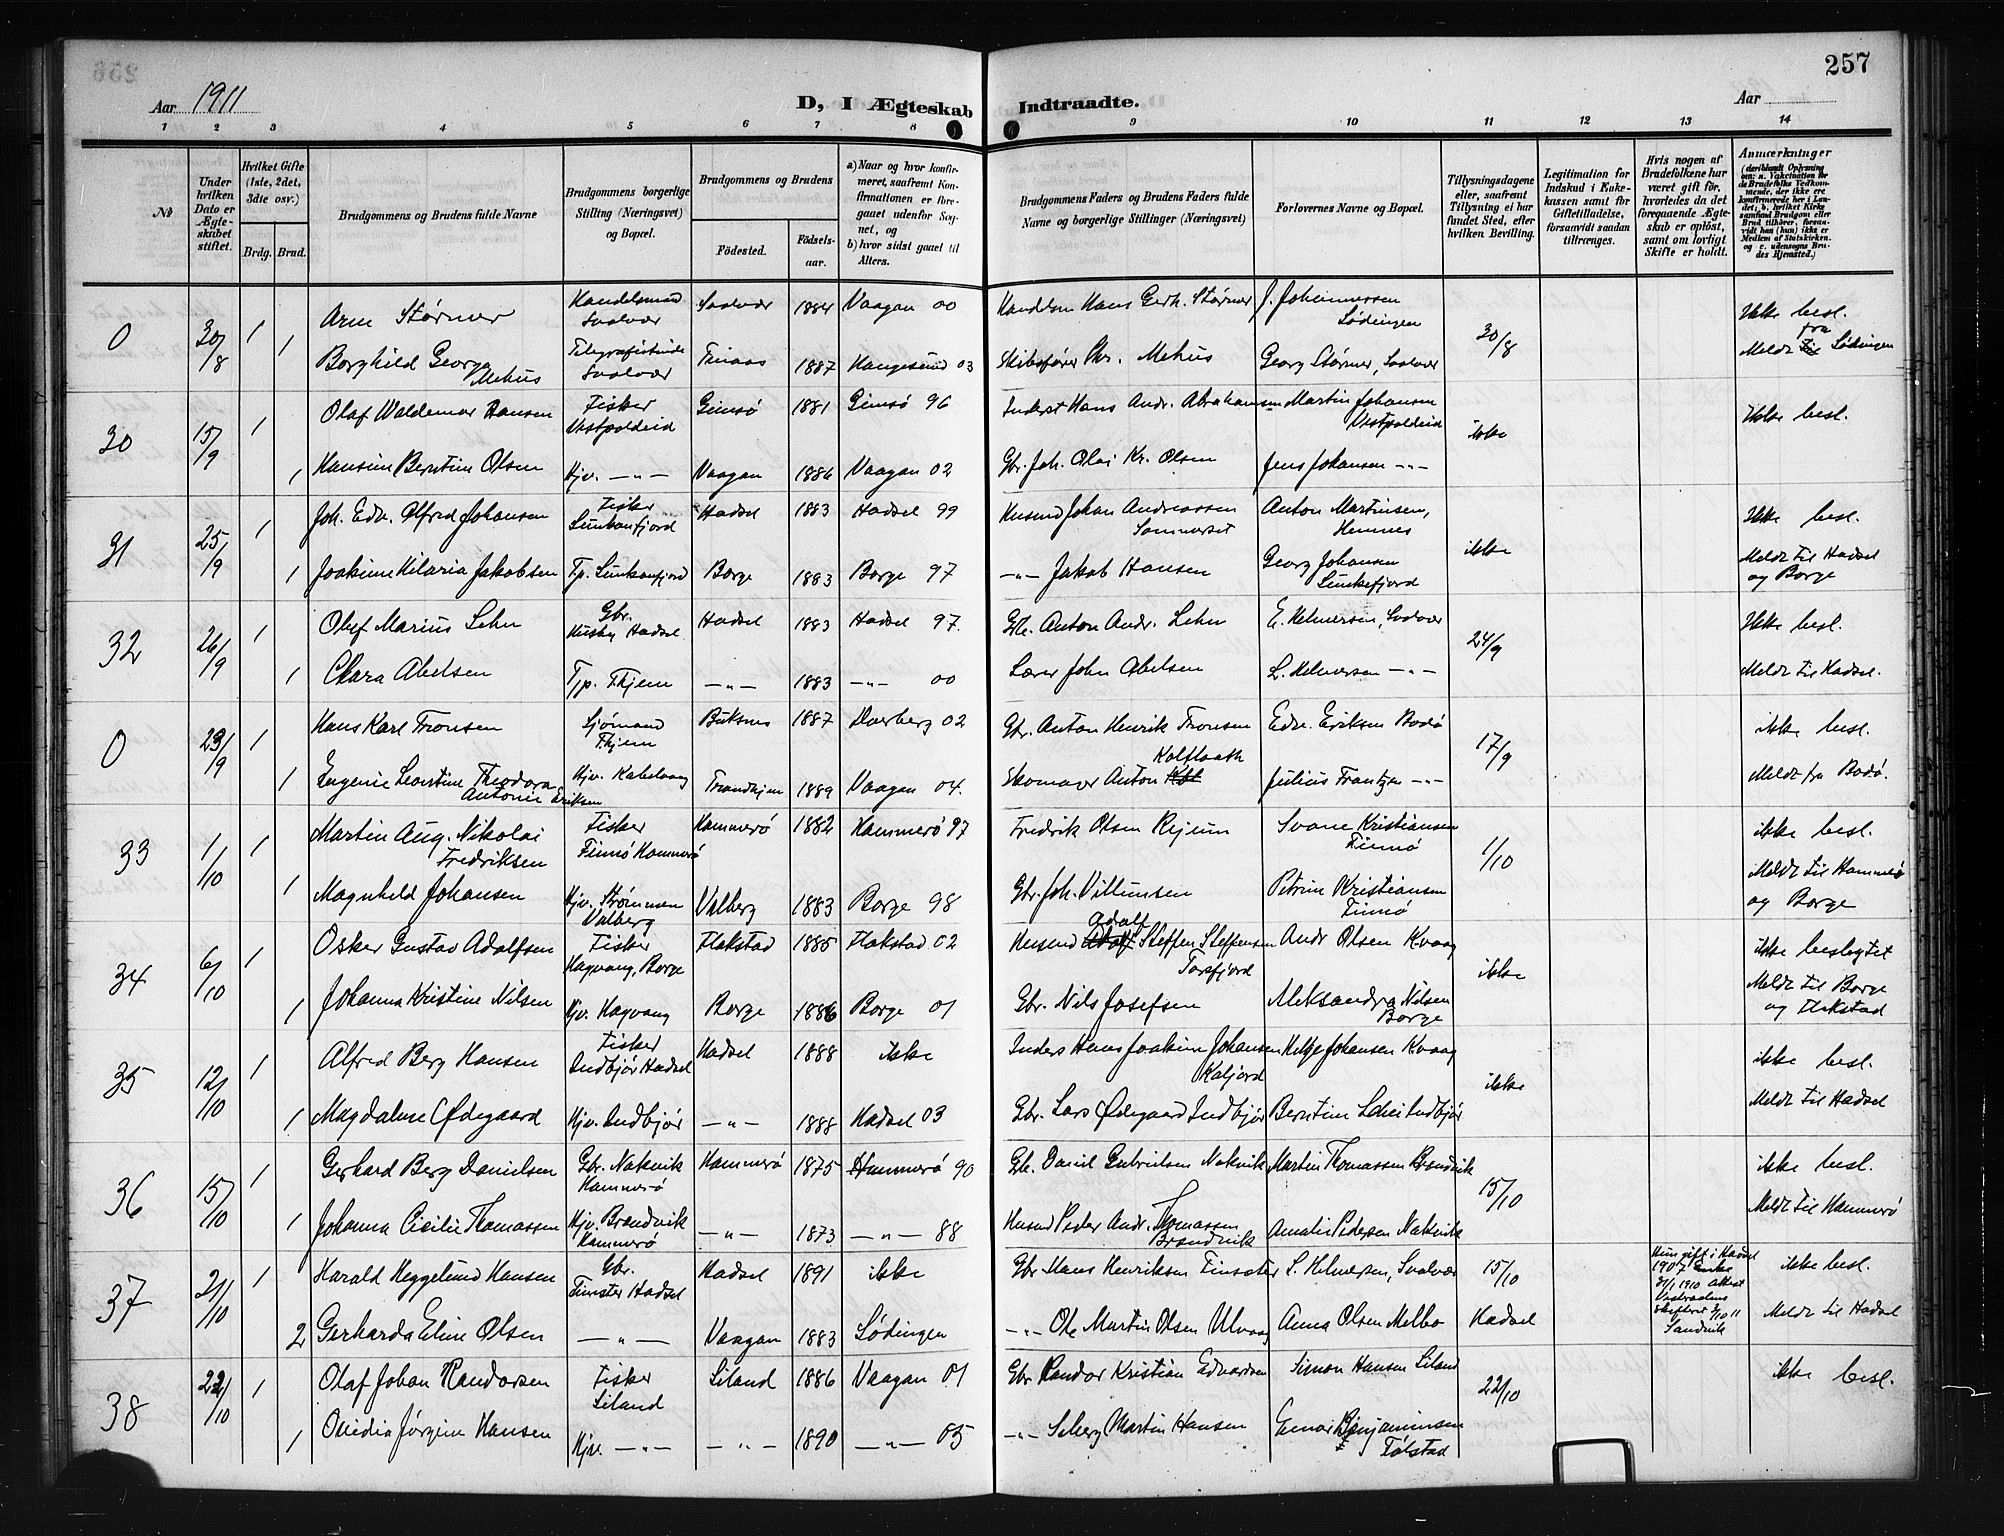 257
Aar 1911
D, I Ægteskab Indtraadte.
Aar
1 2 3 4 5 6 7 8 9 10 11 12 13 14
No
Under hvilken Dato er Ægteskabet stiftet.
Hvilket Gifte (1ste, 2det, 3die osv.)
Brdg. Brud.
Brudgommens og Brudens fulde Navne
Brudgommens borgerlige Stilling (Næringsvei) og Bopæl.
Brudgommens og Brudens
Födested.
Födselsaar.
a) Naar og hvor konfirmeret, saafremt Konfirmationen er foregaaet udenfor Sognet, og
b) hvor sidst gaaet til Alters.
Brudgommens Faders og Brudens Faders fulde Navne og borgerlige Stillinger (Næringsvei)
Forlovernes Navne og Bopæl.
Tillysningsdagene eller, saafremt Tillysning ei har fundet Sted, efter hvilken Bevilling.
Legitimation for Indskud i Enkekassen samt for Giftetilladelse, forsaavidt saadan tiltrænges.
Hvis nogen af Brudefolkene har været gift för, hvorledes da det foregaaende Ægteskab er oplöst, samt om lovligt Skifte er holdt.
Anmærkninger
0 30/8 1 Arne Størmer Handelsmand Svolvær Svolvær 1884 Vaagan 00 Handelsm Hans Gerh. Størmer J. Johannessen Lødingen 30/8 Ikke besl.
1 Borghild Georga Mehus Telegrafistinde Svolvær 1887 Haugesund 03 Skibsfører Chr. Mehus Georg Størmer, Svolvær Meldt fra Lødingen
30 15/9 1 Olaf Waldemar Hansen Fisker Vestpoldeid Gimsø 1881 Gimsø 96 Inderst Hans Andr. Abrahamsen Martin Johansen Vestpoldeid ikke Ikke besl.
1 Hansine Berntine Olsen Hjv. -"- Vaagan 1886 Vaagan 02 Gbr. Joh. Olai Kr. Olsen Jens Johansen -"-
31 25/9 1 Joh. Edv. Alfred Johansen Fisker Hadsel 1883 Hadsel 99 Husmd Johan Andreassen Sommerset Anton Martinsen, Hennes ikke Ikke besl.
1 Joakine Hilaria Jakobsen Tp. Borge 1883 Borge 97 -"- Jakob Hansen Georg Johansen Meldt til Hadsel og Borge
32 26/9 1 Oluf Marius Lehn Gbr. Husby Hadsel Hadsel 1883 Hadsel 97. Gbr. Anton Andr. Lehn E. Helmersen, Svolvær 24/9 Ikke besl.
1 Clara Abelsen Tjp. Thjem -"- 1883 -"- 00 Lærer John Abelsen L. Helmersen -"- Meldt til Hadsel.
0 23/9 1 Hans Karl Tronsen Sjømand Thjem Buksnes 1887 02 Gbr. Anton Henrik Tronsen Edv. Eriksen Bodø 17/9 ikke besl.
1 Eugenie Leontine Theodora Antonie Eriksen Hjv. Kabelvaag Trondhjem 1889 Vaagan 04. Skomager Anton Julius Frantzen -"- Meldt fra Bodø.
33 1/10 1 Martin Aug. Nikolai Fredriksen Fisker Finnø Hammerø Hammerø 1882 Hammerø 97 Fredrik Olsen Svane Kristiansen Finnø 1/10 ikke besl.
1 Magnhild Johansen Hjv. Strømmen Valberg Valberg 1883 Borge 98 Gbr. Joh. Villumsen Petrine Kristiansen Finnø Meldt til Hammerø og Borge
34 6/10 1 Osker Gustav Adolfsen Fisker Hagvaag, Borge Flakstad 1885 Flakstad 02 Husmd Adolf Steffen Steffensen Torsfjord Andr Olsen Kvaag ikke ikke beslegtet
1 Johanna Kristine Nilsen Hjv. Hagvaag Borge 1886 Borge 01 Gbr. Nils Josefsen Aleksandra Nilsen Borge Meldt til Borge og Flakstad
35 12/10 1 Alfred Berg Hansen Fisker Indbjør Hadsel Hadsel 1888 ikke Inders Hans Joakim Johansen Kaljord Helge Johansen Kvaag ikke ikke besl.
1 Magdalene Ødegaard Hjv. Indbjør -"- 1888 Hadsel 03 Gbr. Lars Ødegaard Indbjør Berntine Schei Indbjør Meldt til Hadsel
36 15/10 1 Gerhard Berg Danielsen Gbr. Nakvik Hammerø Hammerø 1875 Hammerø 90 Gbr. Daniel Gabrielsen Nakvik Martin Thomassen Brandvik 15/10 ikke besl.
1 Johanna Cicilie Thomassen Hjv. Brandvik Hammerø -"- 1873 -"- 88 Husmd Peder Andr. Thomassen Brandvik Amalie Pedersen Nakvik Meldt til Hammerø
37 21/10 1 Harald Heggelund Hansen Gbr. Hadsel Hadsel 1891 ikke Gbr Hans Henriksen L. Helmersen, Svolvær 15/10 Hun gift i Hadsel 1907 Enke 31/1 1910 Attest Vesteraalens Skifteret 3/10 11 Sandvik ikke besl.
2 Gerharda Eline Olsen -"- Vaagan 1883 Lødingen -"- Ole Martin Olsen Ulvaag Anna Olsen Melbo Hadsel Meldt til Hadsel
38 22/10 1 Olaf Johan Randorsen Fisker Siland Siland 1886 Vaagan 01 Gbr Randor Kristian Edvardsen Simon Hansen Siland 22/10 ikke besl.
1 Ovidia Jørgine Hansen Hjv. -"- -"- 1890 -"- 05 -"- Soberg Martin Hansen Einar Benjaminsen Følstad